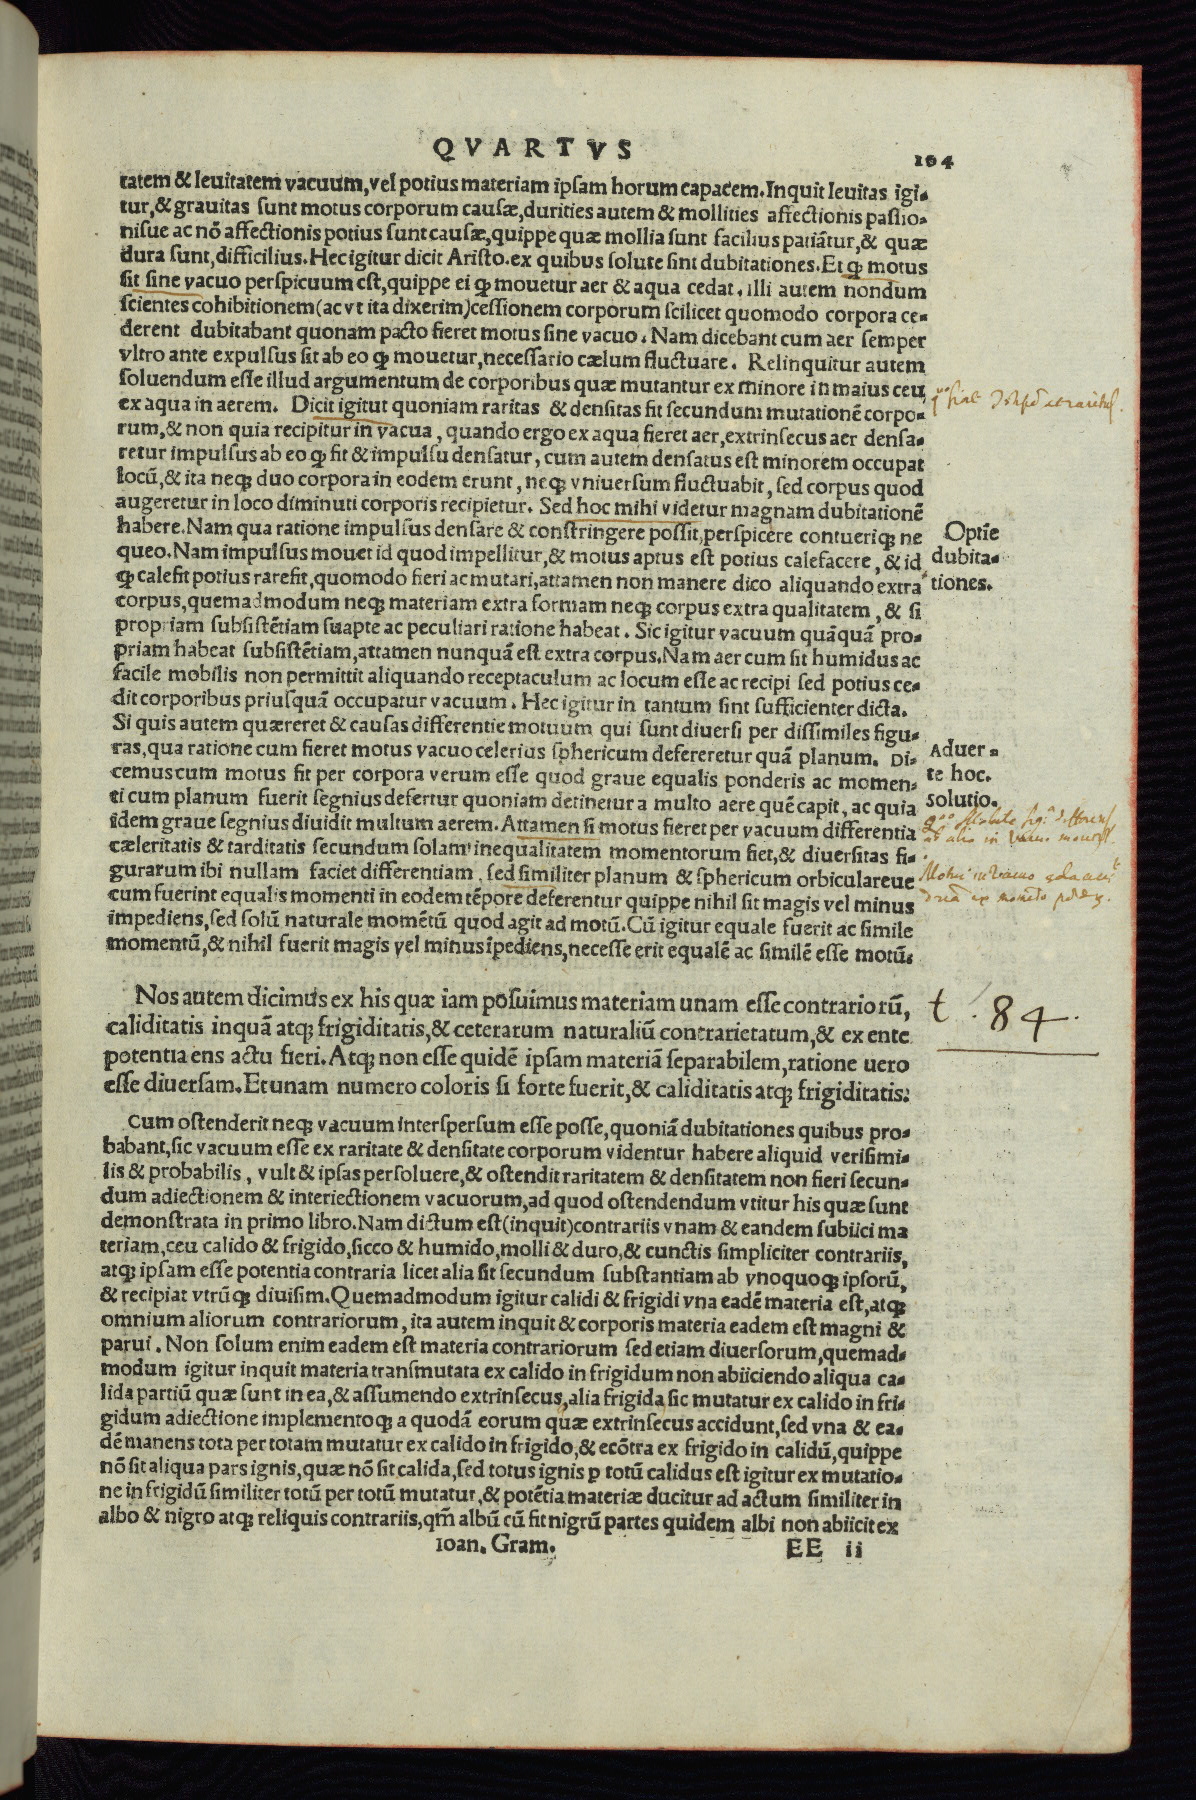 QVARTVS
104
tatem & leuitatem vacuum, vel potius materiam ipsam horum capacem. Inquit leuitas igi-
tur, & grauitas sunt motus corporum causæ, durities autem & mollities affectionis passio-
nisue ac nō affectionis potius sunt causæ, quippe quæ mollia sunt facilius patiātur, & quæ
dura sunt, difficilius. Hec igitur dicit Aristo. ex quibus solute sint dubitationes. Et ꝙ motus
sit sine vacuo perspicuum est, quippe ei ꝙ mouetur aer & aqua cedat. illi autem nondum
scientes cohibitionem (ac vt ita dixerim) cessionem corporum scilicet quomodo corpora ce-
derent dubitabant quonam pacto fieret motus sine vacuo. Nam dicebant cum aer semper
vltro ante expulsus sit ab eo ꝙ mouetur, necessario cælum fluctuare. Relinquitur autem
soluendum esse illud argumentum de corporibus quæ mutantur ex minore in maius ceu
ex aqua in aerem. Dicit igitut quoniam raritas & densitas fit secundum mutationē corpo-
rum, & non quia recipitur in vacua, quando ergo ex aqua fieret aer, extrinsecus aer densa-
retur impulsus ab eo ꝙ fit & impulsu densatur, cum autem densatus est minorem occupat
locū, & ita neqꝫ duo corpora in eodem erunt, neqꝫ vniuersum fluctuabit, sed corpus quod
augeretur in loco diminuti corporis recipietur. Sed hoc mihi videtur magnam dubitationē
habere. Nam qua ratione impulsus densare & constringere possit, perspicere contueriqꝫ ne
queo. Nam impulsus mouet id quod impellitur, & motus aptus est potius calefacere, & id
ꝙ calefit potius rarefit, quomodo fieri ac mutari, attamen non manere dico aliquando extra
corpus, quemadmodum neqꝫ materiam extra formam neqꝫ corpus extra qualitatem, & si
propriam subsistētiam suapte ac peculiari ratione habeat. Sic igitur vacuum quāquā pro-
priam habeat subsistētiam, attamen nunquā est extra corpus. Nam aer cum sit humidus ac
facile mobilis non permittit aliquando receptaculum ac locum esse ac recipi sed potius ce-
dit corporibus priusquā occupatur vacuum. Hec igitur in tantum sint sufficienter dicta.
Si quis autem quæreret & causas differentie motuum qui sunt diuersi per dissimiles figu-
ras, qua ratione cum fieret motus vacuo celerius sphericum defereretur quā planum. Di-
cemus cum motus fit per corpora verum esse quod graue equalis ponderis ac momen-
ti cum planum fuerit segnius defertur quoniam detinetur a multo aere quē capit, ac quia
idem graue segnius diuidit multum aerem. Attamen si motus fieret per vacuum differentia
cæleritatis & tarditatis secundum solam inequalitatem momentorum fiet, & diuersitas fi-
gurarum ibi nullam faciet differentiam, sed similiter planum & sphericum orbiculareue
cum fuerint equalis momenti in eodem tēpore deferentur quippe nihil sit magis vel minus
impediens, sed solū naturale momētū quod agit ad motū. Cū igitur equale fuerit ac simile
momentū, & nihil fuerit magis vel minus īpediens, necesse erit equalē ac similē esse motū.
Optīe
dubita-
tiones.
Aduer-
te hoc.
solutio.
Nos autem dicimus ex his quæ iam posuimus materiam unam esse contrariorū,
caliditatis inquā atqꝫ frigiditatis, & ceterarum naturaliū contrarietatum, & ex ente
potentia ens actu fieri. Atqꝫ non esse quidē ipsam materiā separabilem, ratione uero
esse diuersam. Et unam numero coloris si forte fuerit, & caliditatis atqꝫ frigiditatis.
t. 84.
Cum ostenderit neqꝫ vacuum interspersum esse posse, quoniā dubitationes quibus pro-
babant, sic vacuum esse ex raritate & densitate corporum videntur habere aliquid verisimi-
lis & probabilis, vult & ipsas persoluere, & ostendit raritatem & densitatem non fieri secun-
dum adiectionem & interiectionem vacuorum, ad quod ostendendum vtitur his quæ sunt
demonstrata in primo libro. Nam dictum est (inquit) contrariis vnam & eandem subiici ma
teriam, ceu calido & frigido, sicco & humido, molli & duro, & cunctis simpliciter contrariis,
atqꝫ ipsam esse potentia contraria licet alia sit secundum substantiam ab vnoquoqꝫ ipsorū,
& recipiat vtrūqꝫ diuisim. Quemadmodum igitur calidi & frigidi vna eadē materia est, atqꝫ
omnium aliorum contrariorum, ita autem inquit & corporis materia eadem est magni &
parui. Non solum enim eadem est materia contrariorum sed etiam diuersorum, quemad-
modum igitur inquit materia transmutata ex calido in frigidum non abiiciendo aliqua ca-
lida partiū quæ sunt in ea, & assumendo extrinsecus, alia frigida sic mutatur ex calido in fri-
gidum adiectione implementoqꝫ a quodā eorum quæ extrinsecus accidunt, sed vna & ea-
dē manens tota per totam mutatur ex calido in frigido, & ecōtra ex frigido in calidū, quippe
nō sit aliqua pars ignis, quæ nō sit calida, sed totus ignis ꝑ totū calidus est igitur ex mutatio-
ne in frigidū similiter totū per totū mutatur, & potētia materiæ ducitur ad actum similiter in
albo & nigro atqꝫ reliquis contrariis, qm̄ albū cū fit nigrū partes quidem albi non abiicit ex
Ioan. Gram.
EE ii